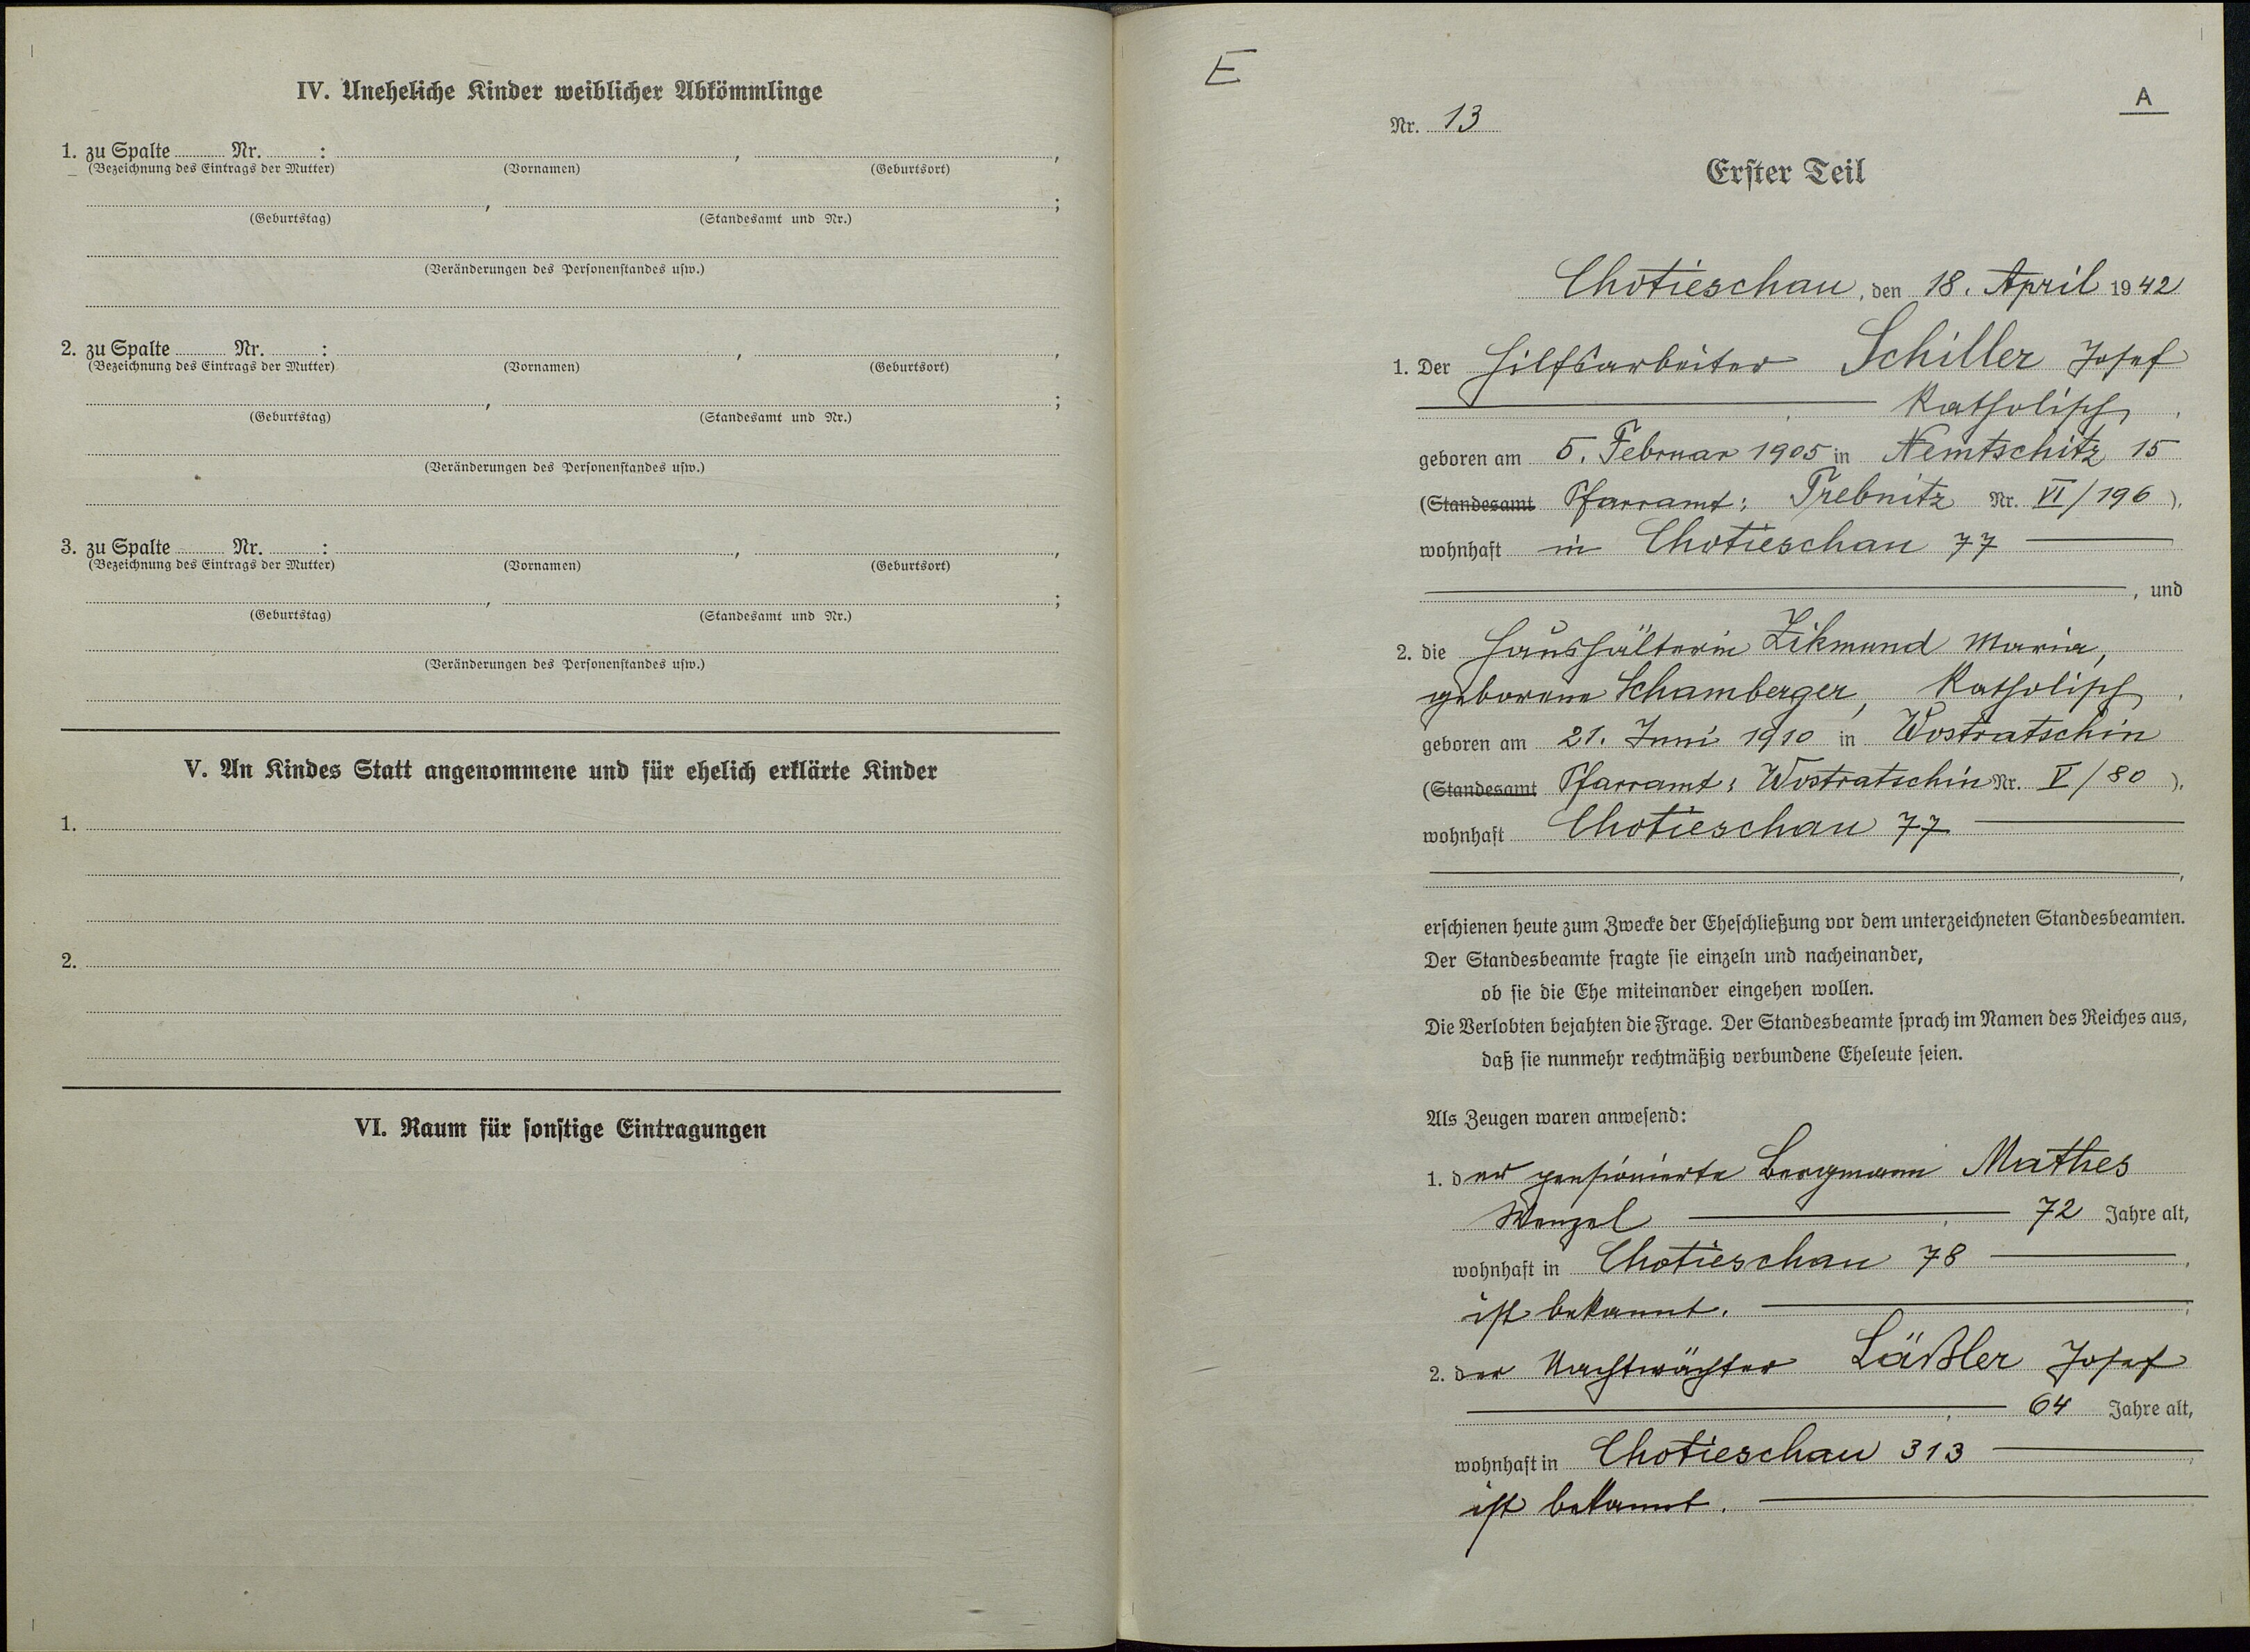 IV. Uneheliche Kinder weiblicher Abkömmlinge
1. zu Spalte Nr. : , ,
(Bezeichnung des Eintrags der Mutter) (Vornamen) (Geburtsort)
, ;
(Geburtstag) (Standesamt und Nr.)
(Veränderungen des Personenstandes usw.)
2. zu Spalte Nr. : , ,
(Bezeichnung des Eintrags der Mutter) (Vornamen) (Geburtsort)
, ;
(Geburtstag) (Standesamt und Nr.)
(Veränderungen des Personenstandes usw.)
3. zu Spalte Nr. : , ,
(Bezeichnung des Eintrags der Mutter) (Vornamen) (Geburtsort)
, ;
(Geburtstag) (Standesamt und Nr.)
(Veränderungen des Personenstandes usw.)
V. An Kindes Statt angenommene und für ehelich erklärte Kinder
1.
2.
VI. Raum für sonstige Eintragungen
E
A
Nr. 13
Erster Teil
Chotieschau, den 18. April 1942
1. Der Hilfsarbeiter Schiller Josef
Katholisch,
geboren am 5. Februar 1905 in Nemtschitz 15
(Standesamt Pfarramt: Trebnitz Nr. VI/196),
wohnhaft in Chotieschau 77
, und
2. die Haushälterin Zikmund Maria,
geborene Schamberger, Katholisch,
geboren am 21. Juni 1910 in Wostratschin
(Standesamt Pfarramt: Wostratschin Nr. V/80),
wohnhaft Chotieschau 77
,
erschienen heute zum Zwecke der Eheschließung vor dem unterzeichneten Standesbeamten.
Der Standesbeamte fragte sie einzeln und nacheinander,
ob sie die Ehe miteinander eingehen wollen.
Die Verlobten bejahten die Frage. Der Standesbeamte sprach im Namen des Reiches aus,
daß sie nunmehr rechtmäßig verbundene Eheleute seien.
Als Zeugen waren anwesend:
1. der pensionierte Bergmann Mathes
Wenzel, 72 Jahre alt,
wohnhaft in Chotieschau 78,
ist bekannt. ;
2. der Nachtwächter Läßler Josef
, 64 Jahre alt,
wohnhaft in Chotieschau 313,
ist bekannt.